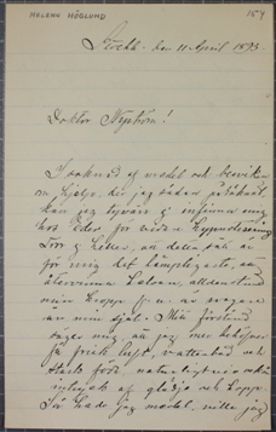 HELENA HÖGLUND 154
Stockh. den 11 April 1893.
Doktor Nyström!
I saknad af medel och besvikna
om hjelp, der jag sådan påräknat,
kan jag tyvärr ej infinna mig
hos Eder för vidare hypnotisering
Tror ej heller, att detta sätt är
för mig det lämpligaste, att
återvinna helsan, alldenstund
min kropp f. n. är svagare
än min själ. Mitt förstånd
säger mig, att jag mer behöfver
få frisk luft, vattenbad och
stark föda, naturligtvis också
intryck af glädje och hopp.
Så hade jag medel, ville jag